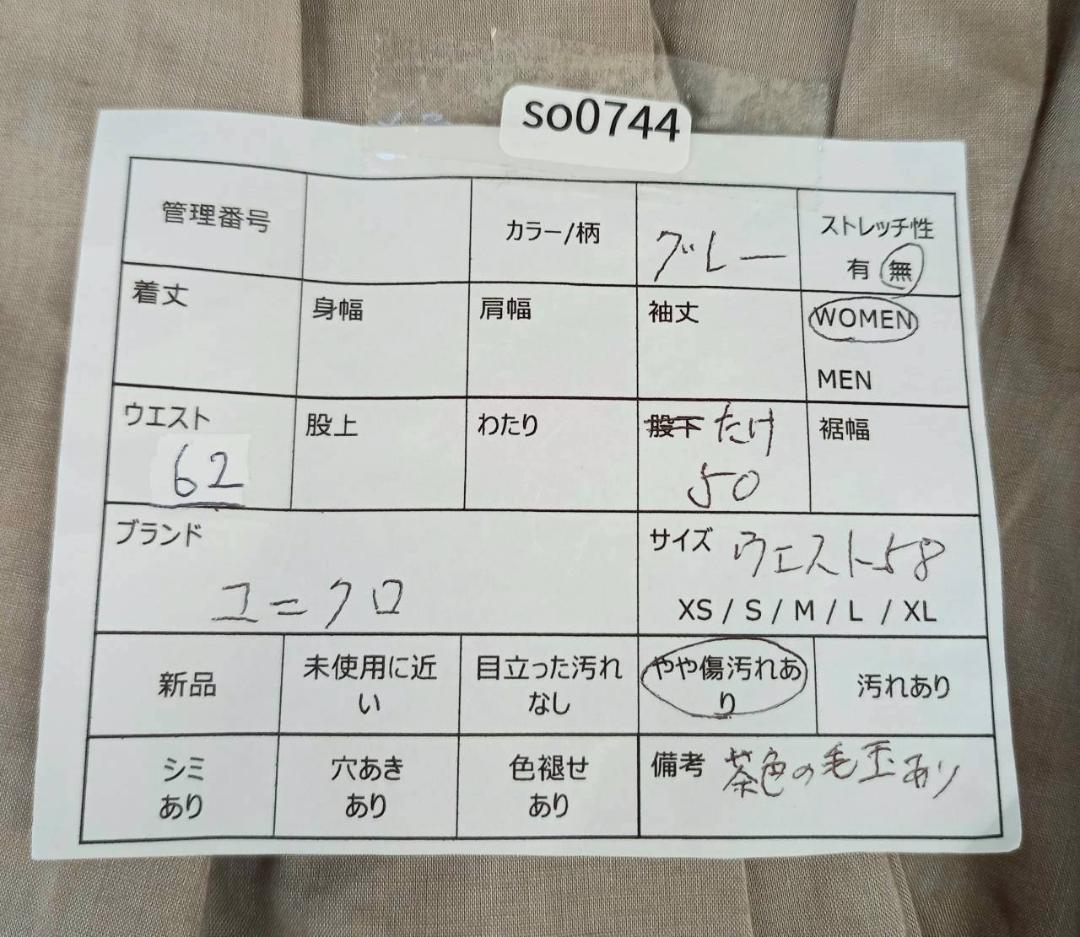 so0744
管理番号
カラー/柄
グレー
ストレッチ性
有 無
着丈
身幅
肩幅
袖丈
WOMEN
MEN
ウエスト
62
股上
わたり
股下 たけ
50
裾幅
ブランド
ユニクロ
サイズ ウエスト58
XS / S / M / L / XL
新品
未使用に近
い
目立った汚れ
なし
やや傷汚れあ
り
汚れあり
シミ
あり
穴あき
あり
色褪せ
あり
備考 茶色の毛玉あり